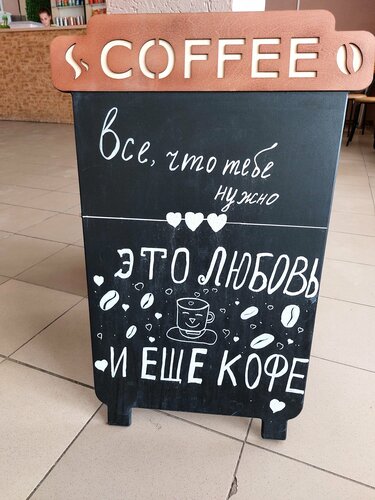 COFFEE
Все, что тебе
нужно
ЭТО ЛЮБОВЬ
И ЕЩЕ КОФЕ